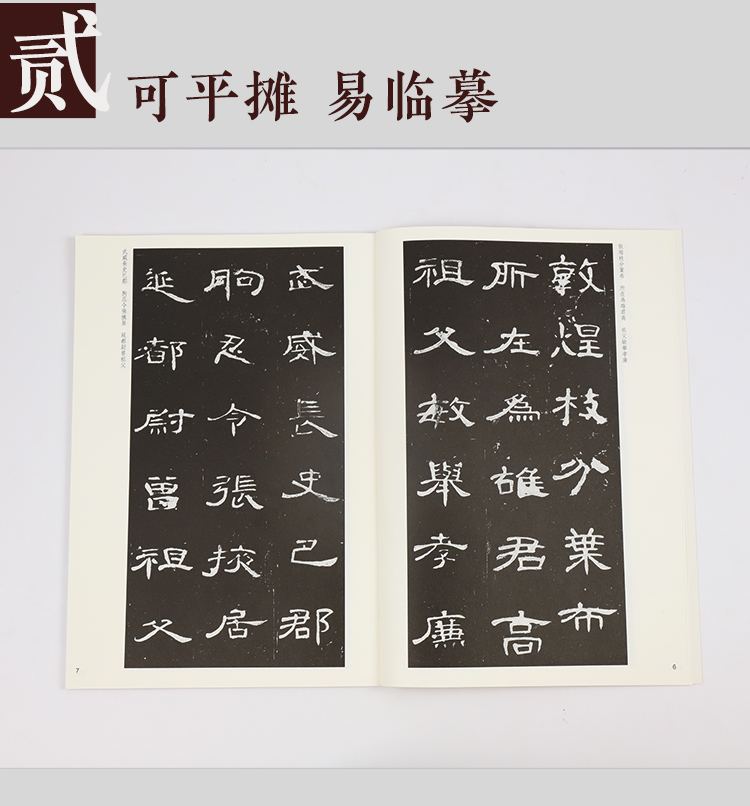 贰
可平摊 易临摹
敦煌枝分葉布 所在爲雄君高 祖父敏舉孝廉
敦煌枝分葉布
所在為雄君高
祖父敏舉孝廉
6
武威長史巴郡
朐忍令張掖居
延都尉曾祖父
武威長史巴郡 朐忍令張掖居 延都尉曾祖父
7